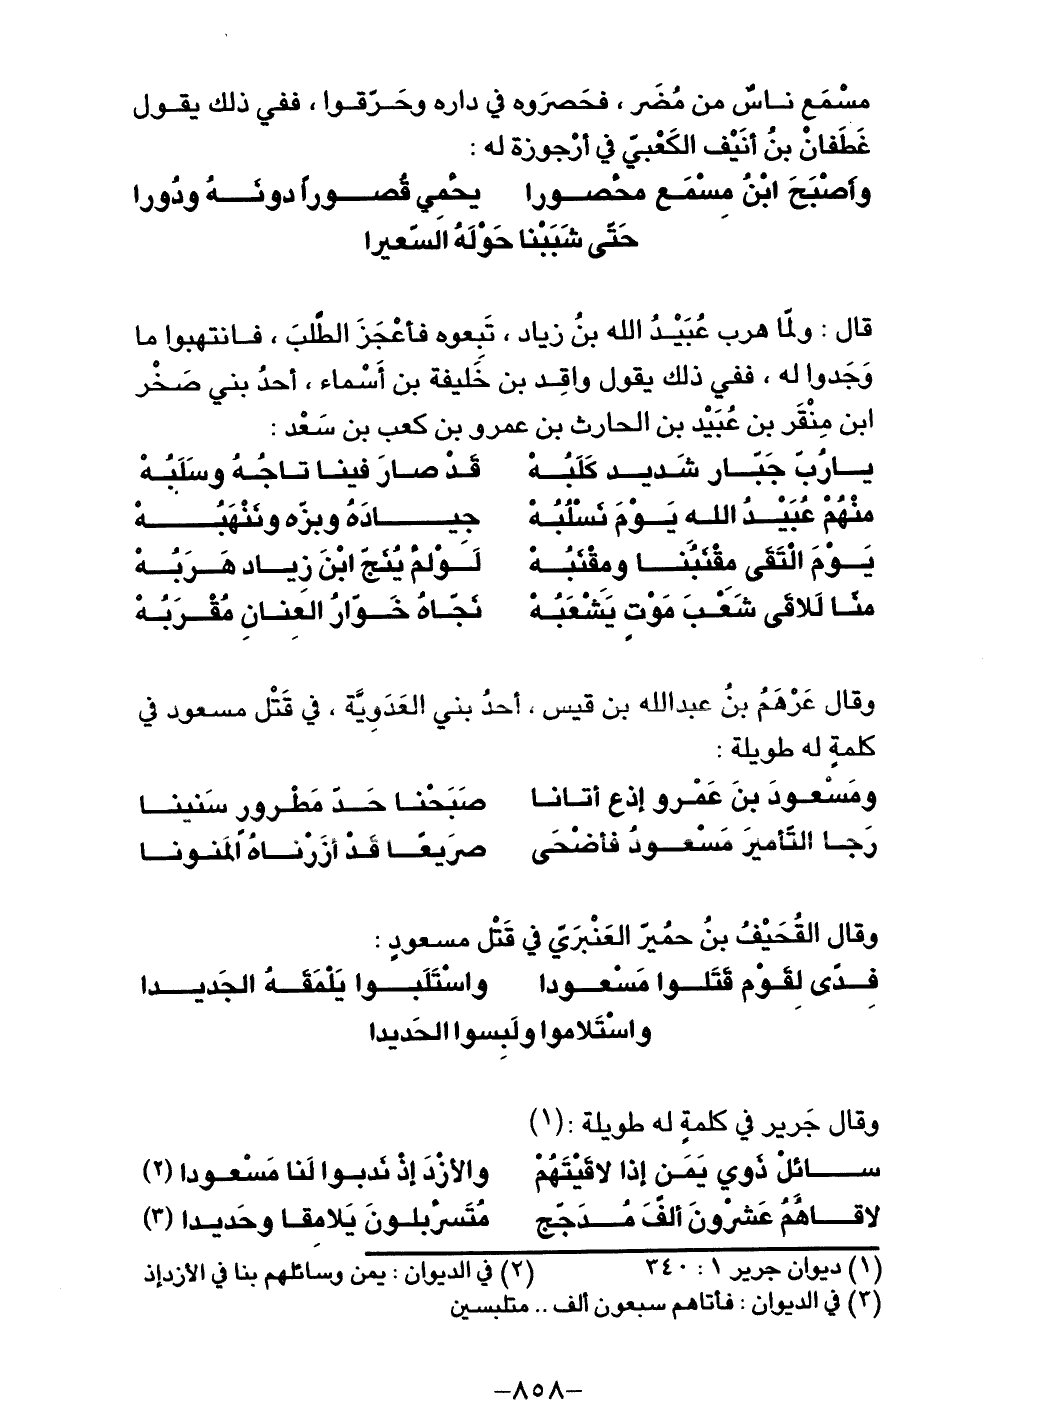 مسْمَع نــاسٌ من مُضَر ، فحَصرَوه في داره وحَـرّقـوا ، ففي ذلك يقـول
غَطَفانْ بنُ أنَيْف الكَعْبيّ في أرْجوزة له :
وأصْبَحَ ابْنُ مِسْمَـع محْصــورا     يحْمي قُصـــوراً دونَــهُ ودُورا
حَتّى شَبَبْنا حَوْلَهُ السّعيرا
قال : ولمّا هرب عُبَيْـدُ الله بنُ زياد ، تَبِعوه فأعْجَزَ الطَّلبَ ، فـانتهبوا ما
وَجَدوا له ، ففي ذلك يقول واقِـد بن خَليفة بن أَسْماء ، أحدُ بني صَخْر
ابن مِنْقَر بن عُبَيْد بن الحارث بن عمرو بن كعب بن سَعْد :
يــارُبّ جَبّـار شـديـد كَلَبُـهْ     قَـدْ صـارَ فينـا تـاجُـهُ وسَلَبُـهْ
منْهُمْ عُبَيْـدُ اللـه يَـوْمَ نَسْلُبُـهْ     جِيــــادَهُ وبزّه ونَنْهَبُـــــهْ
يَـوْمَ الْتَقَى مِقْنَبُنــا ومقْنَبُـهْ     لَـوْلمْ يُنَجّ ابْنَ زِيـاد هَـرَبُـهْ
منّـا لَلاقَى شَعْـبَ مَوْتٍ يَشْعَبُـهْ     نَجّـاهُ خَـوّارُ العِنـانِ مُقْـرَبُـهْ
وقال عَرْهَمُ بنُ عبدالله بن قيس ، أحدُ بني العَدَوِيَّة ، في قَتْل مسعود في
كلمةٍ له طويلة :
ومَسْعـودَ بنَ عَمْـرو إذع أتـانـا     صبَحْنـا حَـدّ مَطْـرورٍ سَنينـا
رَجـا التّأميرَ مَسْعـودُ فأضْحَى     صرَيعًـا قَدْ أزَرْنـاهُ المَنونـا
وقال القُحَيْفُ بنُ حميرّ العَنْبَريّ في قَتْل مسعودٍ :
فِـدًى لِقَـوْم قَتَلـوا مَسْعـودا     واسْتَلَبــوا يَلْمَقَـهُ الجَديــدا
واسْتَلاموا ولَبِسوا الحَديدا
وقال جَرير في كلمةٍ له طويلة :(١)
ســائلْ ذَوي يَمَـن إذا لاقَيْتَهُمْ     والأزْدَ إذْ نَدبـوا لَنا مَسْعـودا (٢)
لاقـاهُمُ عَشْرونَ ألفَ مُـدَجّج     مُتَسرْبلـونَ يَلامِقـا وحَديـدا (٣)
(١) ديوان جرير ١ : ٣٤٠     (٢) في الديوان : يمن وسائلهم بنا في الأزدإذ
(٣) في الديوان : فأتاهم سبعون ألف .. متلبسين
–٨٥٨–